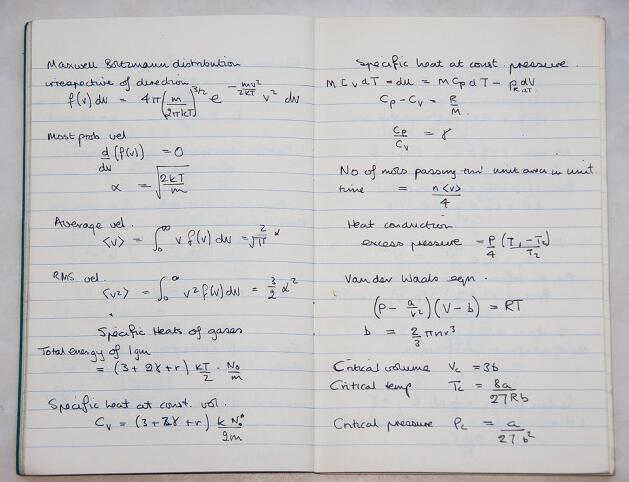 Maxwell Boltzmann distribution
irrespective of direction
f(v) dv = 4π (m/2πkT)^3/2 e^-mv²/2kT v² dv
Most prob vel
d/dv (f(v)) = 0
α = √(2kT/m)
Average vel.
<v> = ∫₀^∞ v f(v) dv = 2/√π α
RMS vel.
<v²> = ∫₀^∞ v² f(v) dv = 3/2 α²
Specific Heats of gases
Total energy of 1gm
= (3 + 2γ + r) kT/2 . N₀/m
Specific heat at const. vol.
Cv = (3 + 2γ + r) k N₀/2m
Specific heat at const. pressure.
M Cv dT = du = M Cp dT - p dV
R dT
Cp - Cv = R/M
Cp/Cv = γ
No of mols passing thro' unit area in unit
time = n<v>/4
Heat conduction
excess pressure = P/4 (T₁ - T₂)/T₂
Van der Waals eqn.
(P - a/v²)(V - b) = RT
b = 2/3 π n r³
Critical volume Vc = 3b
Critical temp Tc = 8a/27Rb
Critical pressure Pc = a/27b²